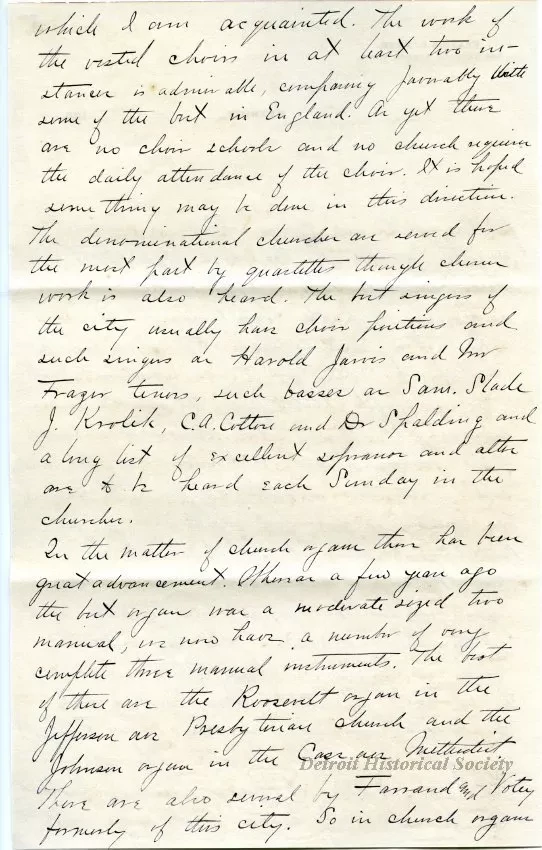 which I am acquainted. The work of
the vested choirs in at least two in-
stances is admirable, comparing favorably with
some of the best in England. As yet there
are no choir schools and no church requires
the daily attendance of the choir. It is hoped
something may be done in this direction.
The denominational churches are served for
the most part by quartettes though chorus
work is also heard. The best singers of
the city usually have choir positions and
such singers as Harold Jarvis and Mr
Frazer tenors, such basses as Sam. Slade
J. Krolik, C.A. Cotton and Dr Spalding and
a long list of excellent sopranos and altos
are to be heard each Sunday in the
churches.
In the matter of church organs there has been
great advancement. Whereas a few years ago
the best organ was a moderate sized two
manual, we now have a number of very
complete three manual instruments. The best
of these are the Roosevelt organ in the
Jefferson ave Presbyterian church and the
Johnson organ in the Cass ave. Methodist
Detroit Historical Society
There are also several by Farrand and Votey
formerly of this city. So in church organs